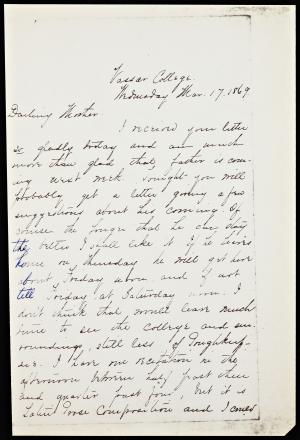 Vassar College.
Wednesday Mar. 17. 1869
Darling Mother.
I received your letter
so gladly today and am much
more than glad that father is com-
ing next week tonight you will
probably get a letter giving a few
suggestions about his coming. Of
course the longer that he can stay
the better I shall like it. If he leaves
home on Thursday he will get here
about Friday noon and if not
till Friday at Saturday noon. I
don't think that would leave much
time to see the College and sur-
roundings, still less of Poughkeep-
sie. I have one recitation in the
afternoon between half past three
and quarter past four, but it is
Latin Prose Composition and I could